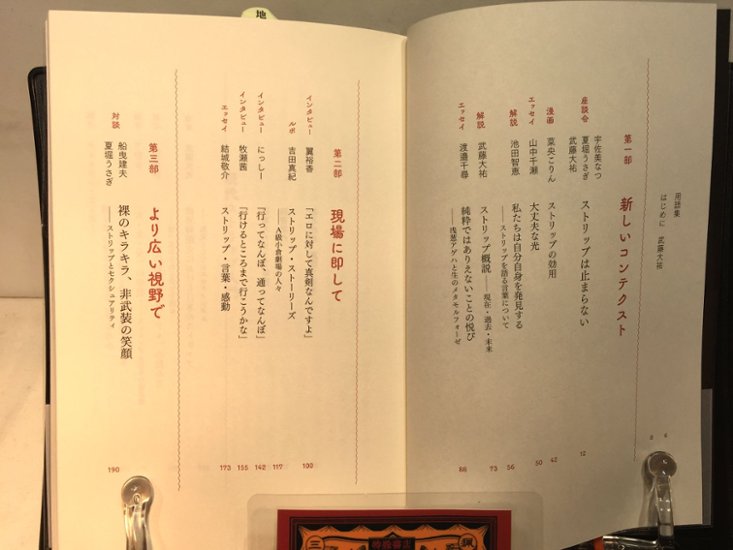 用語集
はじめに 武藤大祐
6
8
第一部 新しいコンテクスト
座談会 宇佐美なつ
夏堀うさぎ
武藤大祐
ストリップは止まらない
12
漫画 菜央こりん ストリップの効用 42
エッセイ 山中千瀬 大丈夫な光 50
解説 池田智恵 私たちは自分自身を発見する
――ストリップを語る言葉について
56
解説 武藤大祐 ストリップ概説――現在・過去・未来 73
エッセイ 渡邉千尋 純粋ではありえないことの悦び
――浅葱アゲハと生のメタモルフォーゼ
88
第二部 現場に即して
インタビュー 翼裕香 「エロに対して真剣なんですよ」 100
ルポ 吉田真紀 ストリップ・ストーリーズ
――A級小倉劇場の人々
117
インタビュー にっしー 「行ってなんぼ、通ってなんぼ」 142
インタビュー 牧瀬茜 「行けるところまで行こうかな」 155
エッセイ 結城敬介 ストリップ・言葉・感動 173
第三部 より広い視野で
対談 船曳建夫
夏堀うさぎ
裸のキラキラ、非武装の笑顔
――ストリップとセクシュアリティ
190
地
三